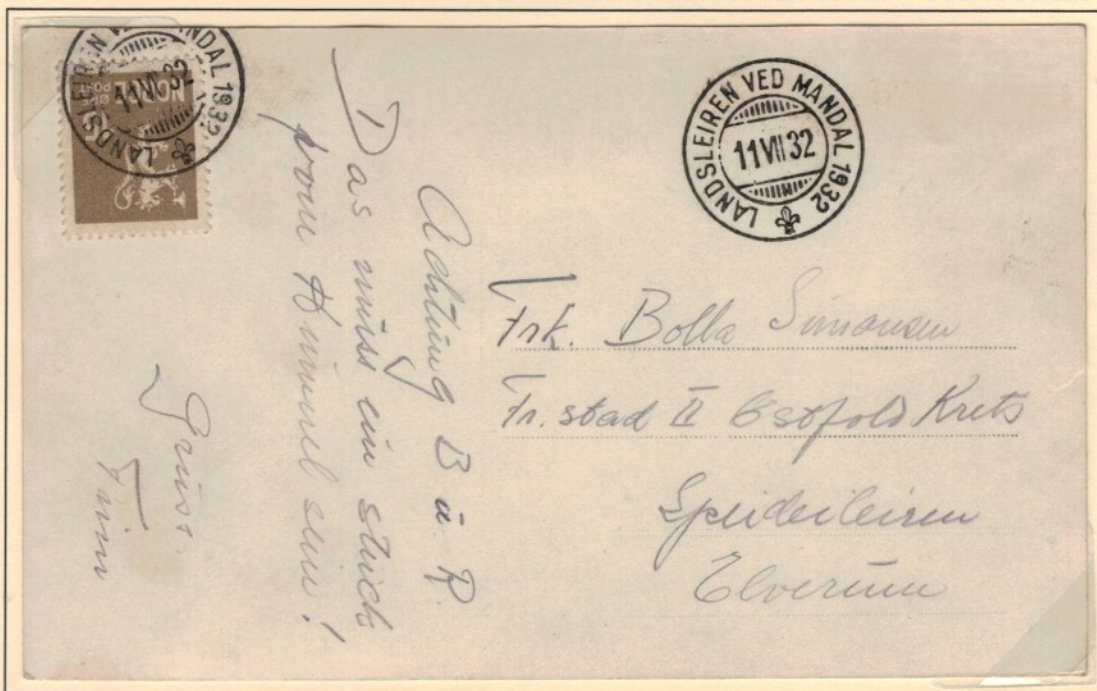 LANDSLEIREN VED MANDAL 1932
11 VII 32
NORGE
LANDSLEIREN VED MANDAL 1932
11 VII 32
Achtung B u. P.
Das muss ein stück
vom Himmel sein!
Gruss
Frk. Bolla Simonsen
Fr. stad II Østfold Krets
Speiderleiren
Elverum